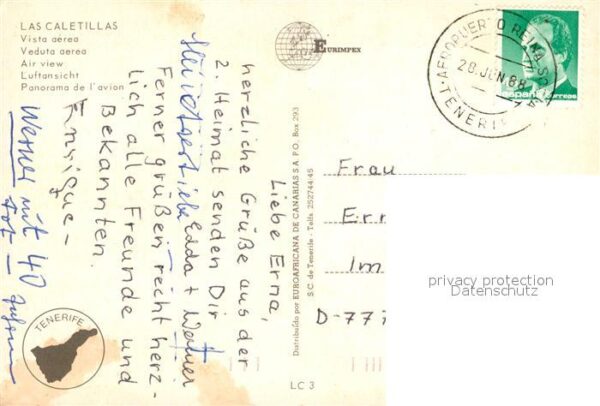 LAS CALETILLAS
Vista aerea
Veduta aerea
Air view
Luftansicht
Panorama de l'avion
EURIMPEX
AEROPUERTO REINA SOFIA
28 JUN 88
TENERIFE
españa
correos
Liebe Erna,
herzliche Grüße aus der
2. Heimat senden Dir
Edda + Werner
Ferner grüßen recht herz-
lich alle Freunde und
Bekannten.
Enrique -
Werner mit 40
Distribuido por EUROAFRICANA DE CANARIAS S A P.O. Box 293
S C de Tenerife - Telfs 252744/45
Frau
Err
Im
D-77
privacy protection
Datenschutz
TENERIFE
LC 3